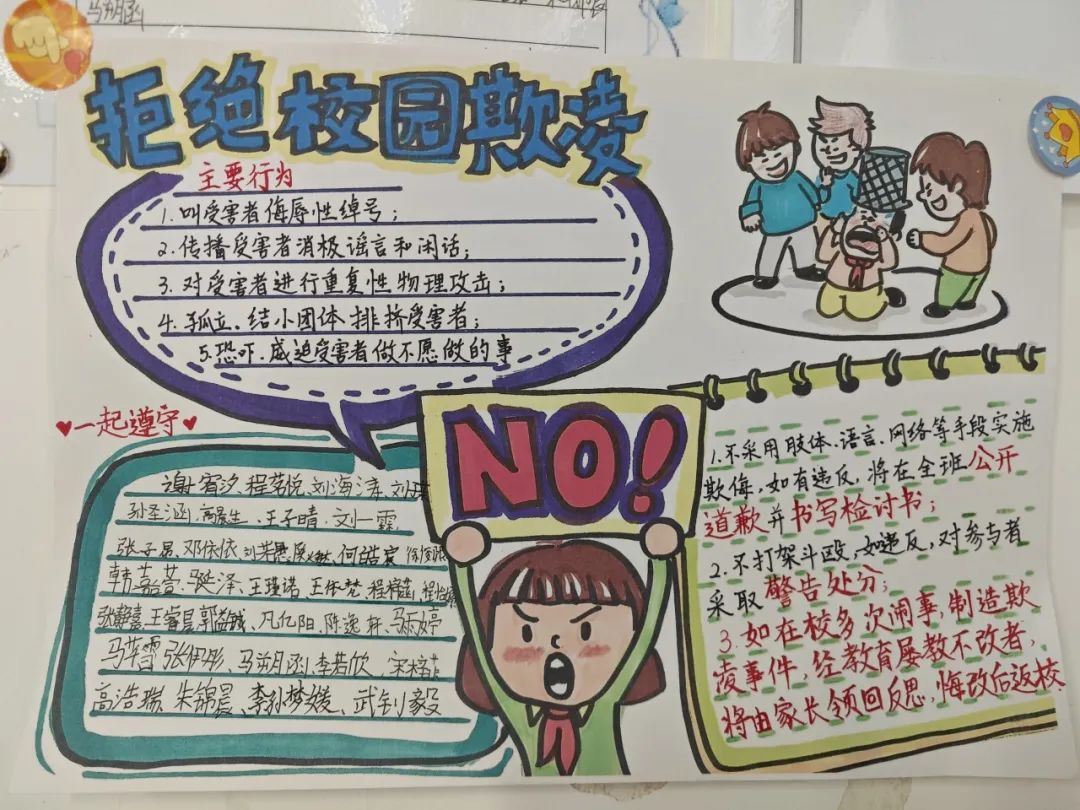 马朔函
拒绝校园欺凌
主要行为
1.叫受害者侮辱性绰号;
2.传播受害者消极谣言和闲话;
3.对受害者进行重复性物理攻击;
4.孤立.结小团体排挤受害者;
5.恐吓.威迫受害者做不愿做的事
NO!
一起遵守
程茗悦、刘海涛、
王子晴、刘一霖,
张子昂、邓依依
韩嘉萱、王瑾诺
陈逸轩、马雨婷
马苹雪 张伊彤、马朔函 李若欣
高浩瑞 朱锦晨、李孙梦媛、武钊毅
1.不采用肢体、语言、网络等手段实施
欺侮,如有违反,将在全班公开
道歉并书写检讨书;
2.不打架斗殴,如违反,对参与者
采取警告处分;
3.如在校多次闹事,制造欺
凌事件,经教育屡教不改者,
将由家长领回反思,悔改后返校